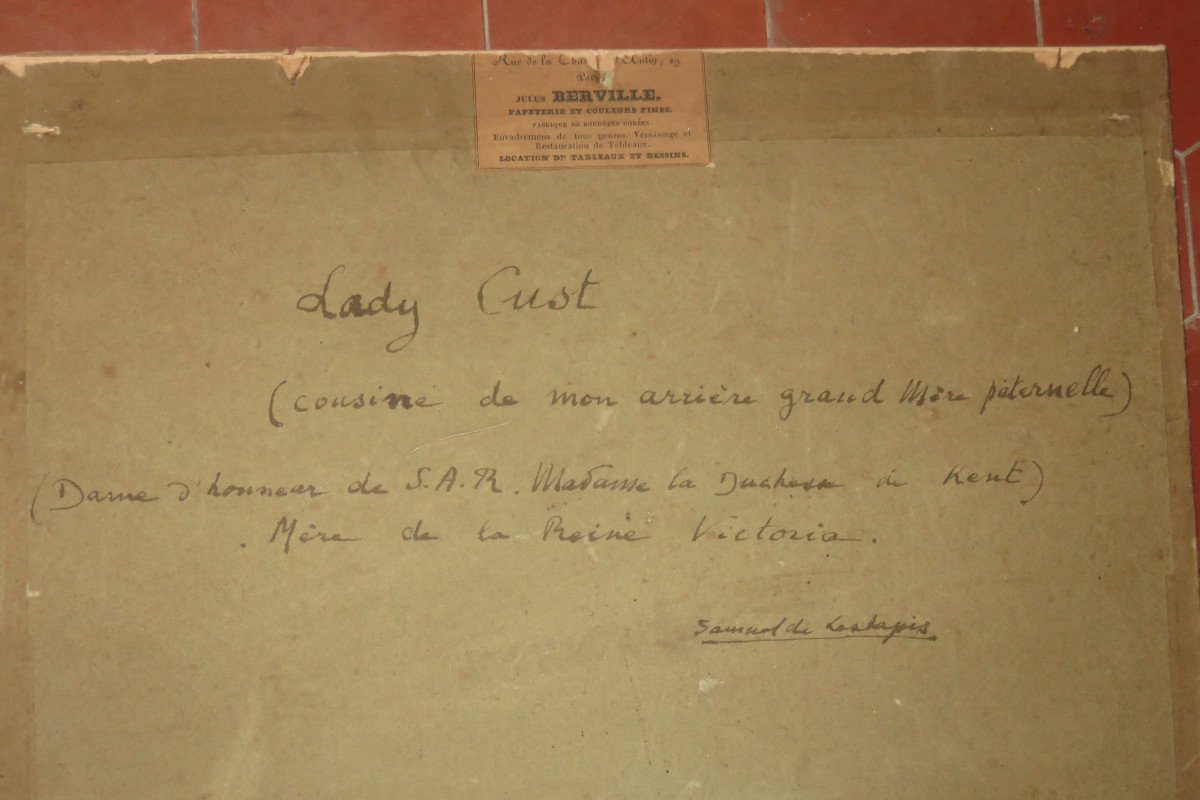 Rue de la Chau d'Antin, 29
Paris
JULES BERVILLE,
PAPETERIE ET COULEURS FINES.
FABRIQUE DE BORDURES DORÉES.
Encadremens de tous genres. Vernissage et
Restauration de Tableaux.
LOCATION DE TABLEAUX ET DESSINS.
Lady Cust
(cousine de mon arrière grand Mère paternelle)
(Dame d'honneur de S.A.R. Madame la Duchesse de Kent)
. Mère de la Reine Victoria.
Samuel de Lestapis